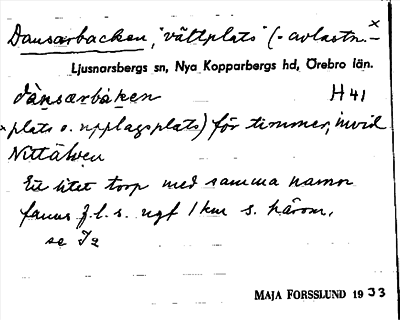 Dansarbacken, "vältplats" (= avlastn.- x
Ljusnarsbergs sn, Nya Kopparbergs hd, Örebro län.
dànsarbáken H 41
x plats o. upplagsplats) för timmer, invid
Nittälven
Ett litet torp med samma namn
fanns f.l.s. ngt 1 km s. härom,
se I2
MAJA FORSSLUND 1933